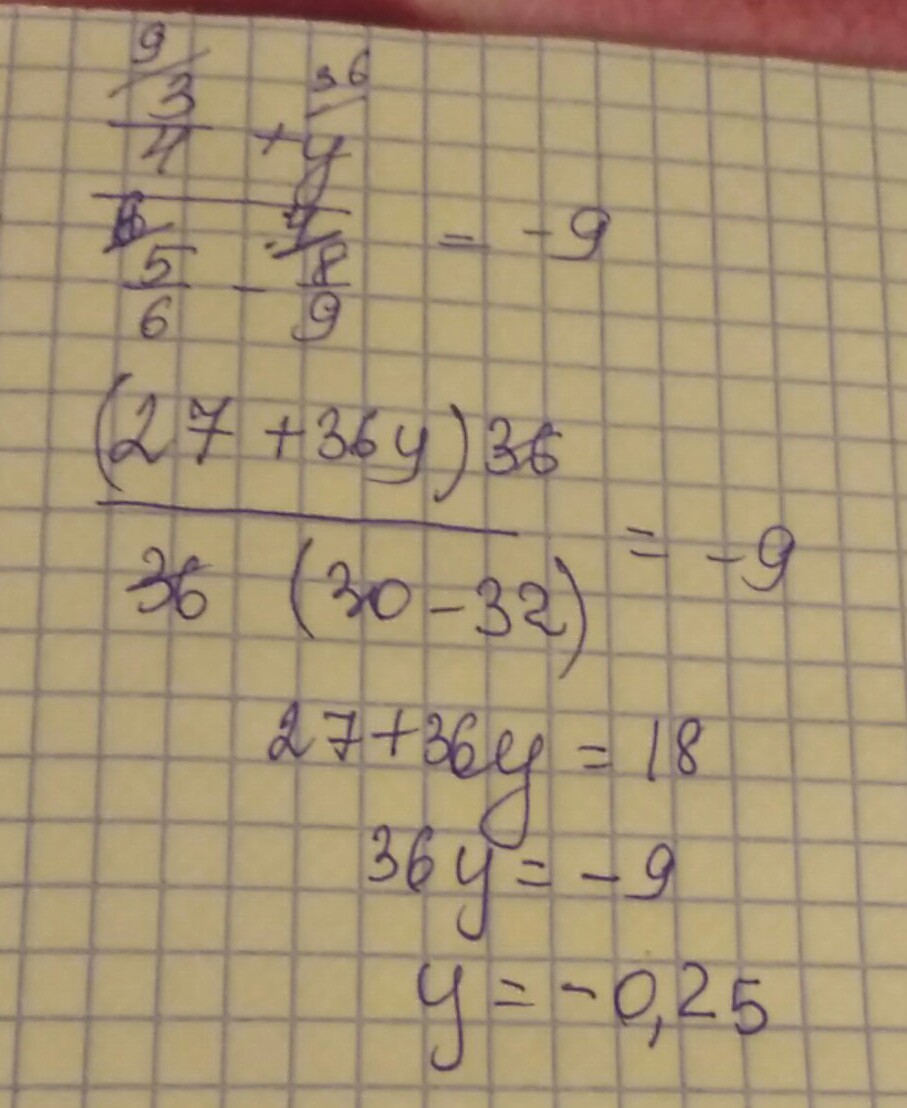 9/ 36/
3/4 + y
6/ 4/
5/6 - 8/9 = -9
(27 + 36y) 36
36 (30 - 32) = -9
27 + 36y = 18
36y = -9
y = -0,25